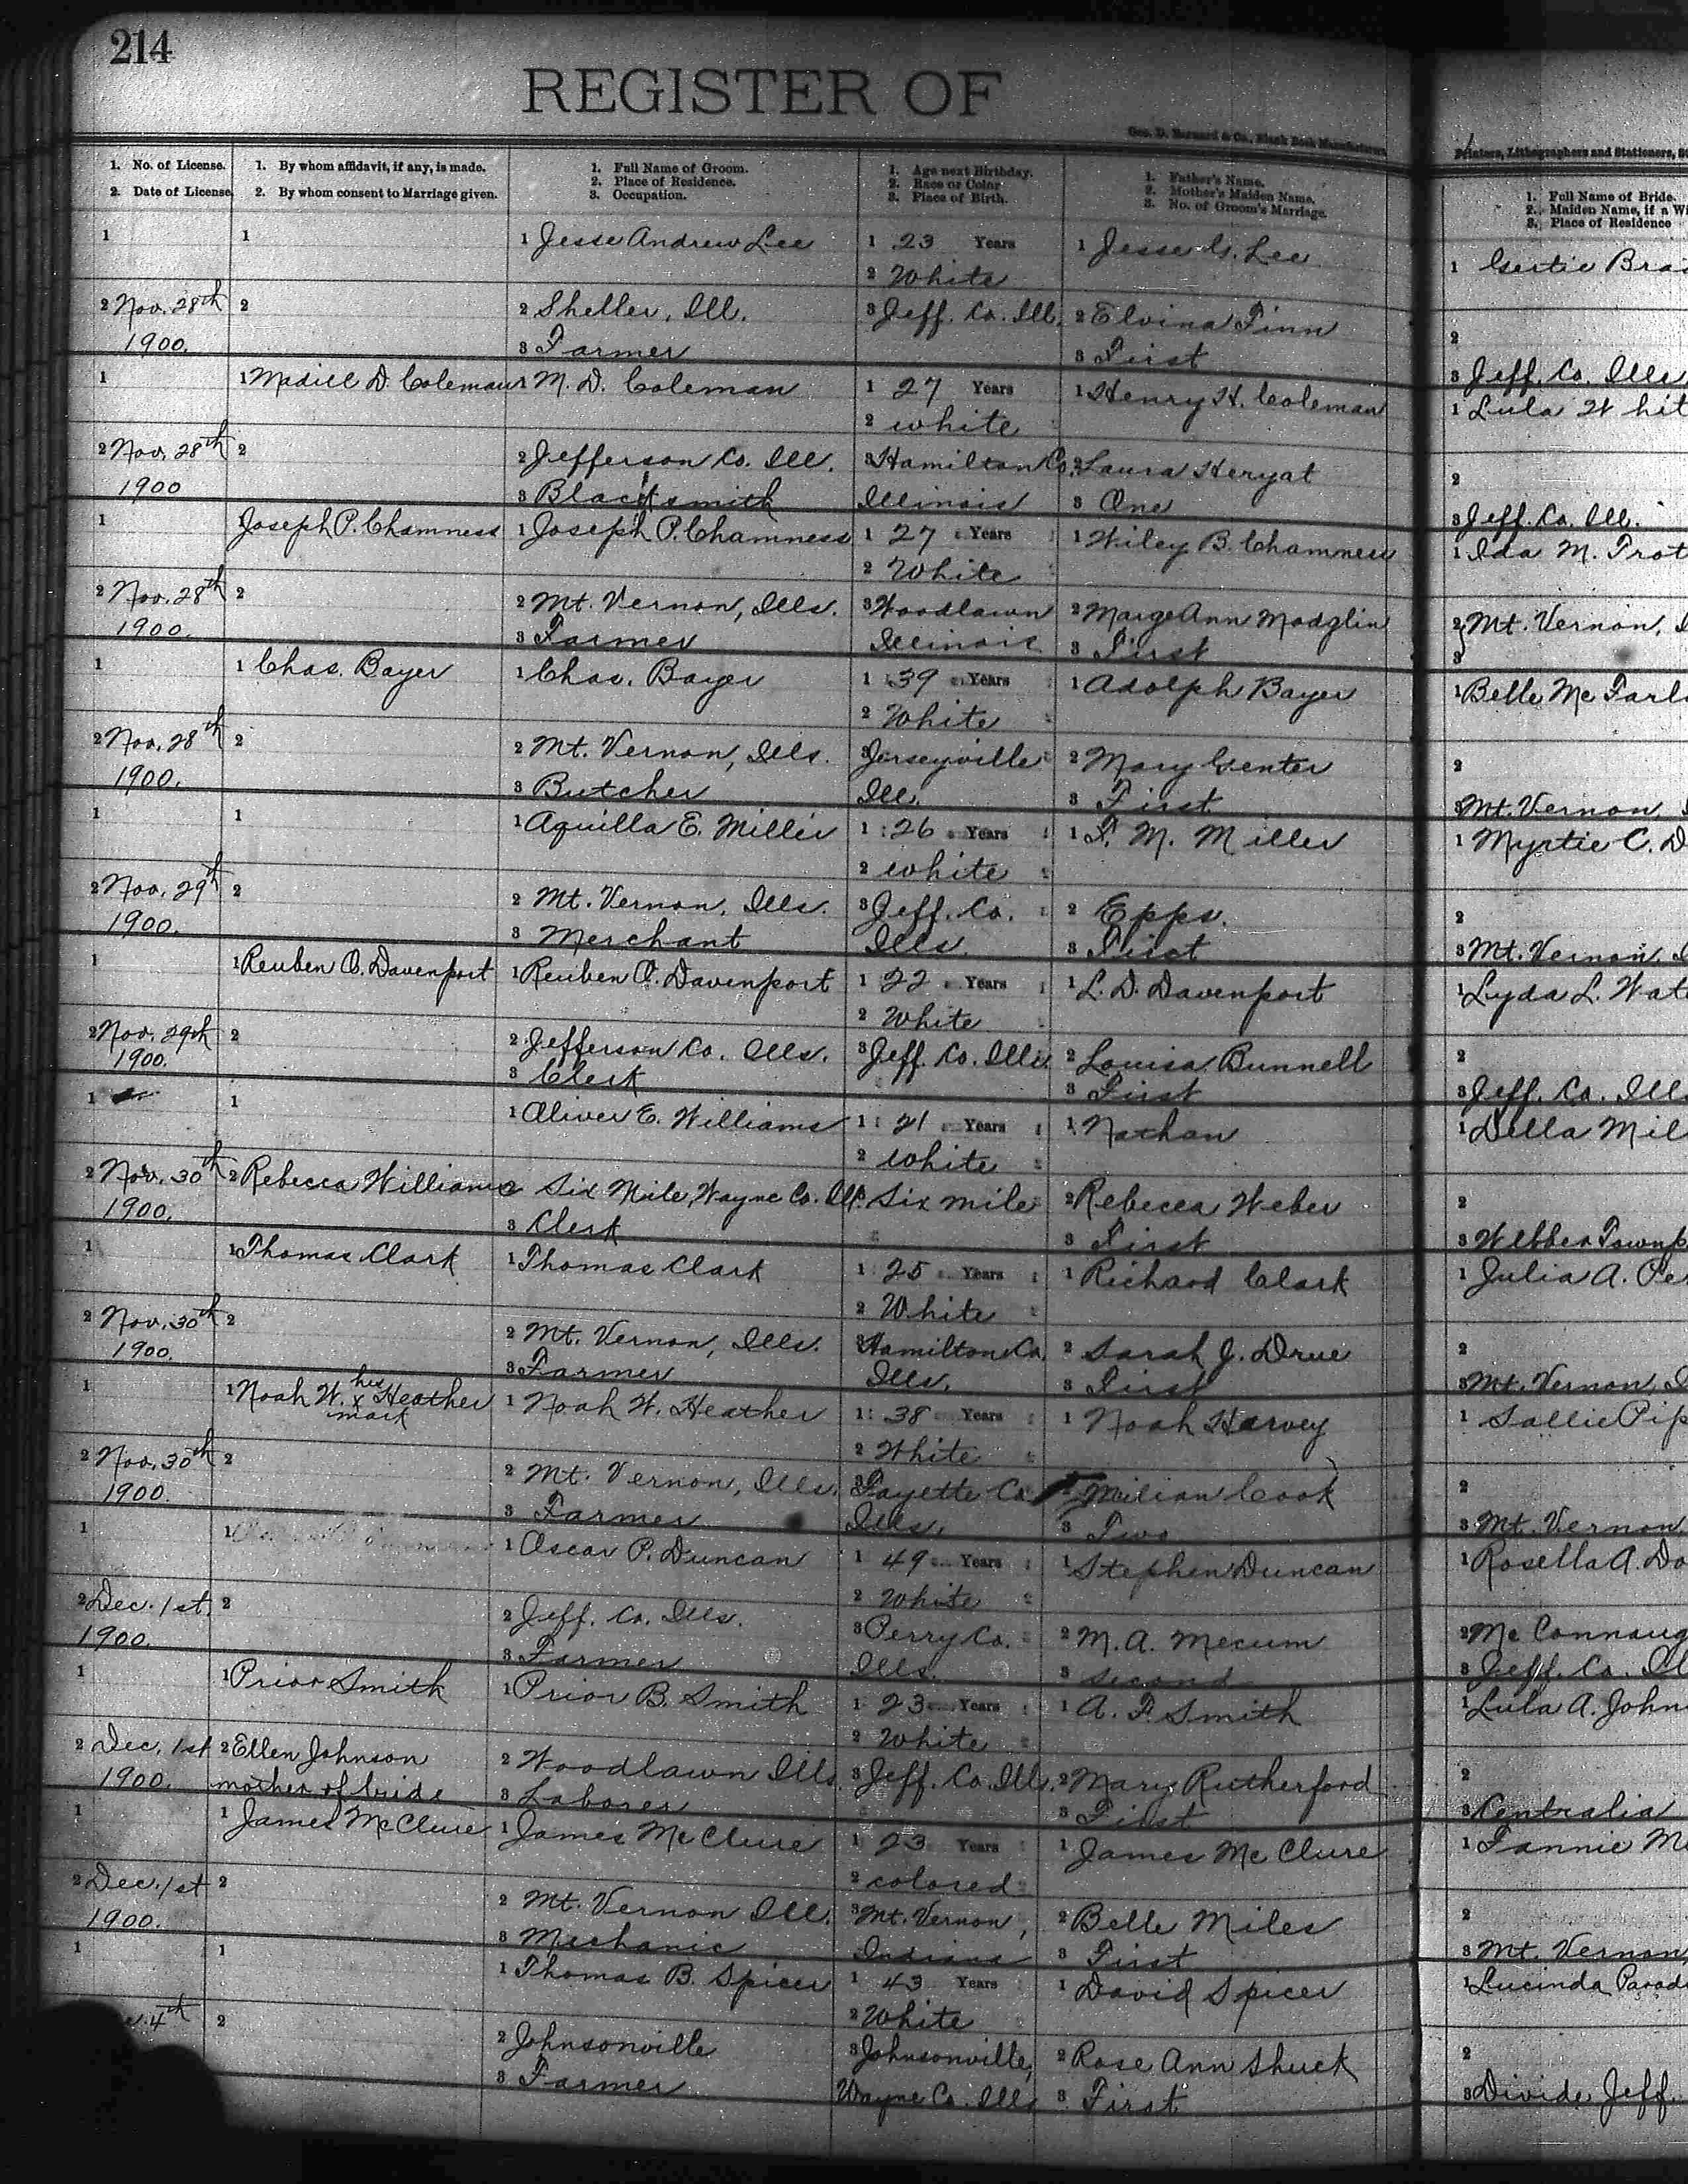 214
REGISTER OF
Geo. D. Barnard & Co., Blank Book Manufacturers,
Printers, Lithographers and Stationers,
1. No. of License.
2. Date of License.
1. By whom affidavit, if any, is made.
2. By whom consent to Marriage given.
1. Full Name of Groom.
2. Place of Residence.
3. Occupation.
1. Age next Birthday.
2. Race or Color
3. Place of Birth.
1. Father's Name.
2. Mother's Maiden Name.
3. No. of Groom's Marriage.
1. Full Name of Bride.
2. Maiden Name, if a Wi
3. Place of Residence
1
2 Nov. 28th
1900.
1
2
1 Jesse Andrew Lee
2 Sheller, Ill.
3 Farmer
1 23 Years
2 White
3 Jeff. Co. Ill.
1 Jesse G. Lee
2 Elvina Finn
3 First
1 Gertie Bra
2
3 Jeff. Co. Ills.
1
2 Nov. 28th
1900
1 Madill D. Coleman
2
1 M. D. Coleman
2 Jefferson Co. Ill.
3 Blacksmith
1 27 Years
2 white
3 Hamilton Co.
Illinois
1 Henry H. Coleman
2 Laura Heryat
3 One
1 Lula Whit
2
3 Jeff. Co. Ill.
1
2 Nov. 28th
1900.
1 Joseph P. Chamness
2
1 Joseph P. Chamness
2 Mt. Vernon, Ills.
3 Farmer
1 27 Years
2 White
3 Woodlawn
Illinois
1 Wiley B. Chamness
2 Marge Ann Modglin
3 First
1 Ida M. Trot
2 Mt. Vernon,
3
1
2 Nov. 28th
1900.
1 Chas. Bayer
2
1 Chas. Bayer
2 Mt. Vernon, Ills.
3 Butcher
1 39 Years
2 White
3 Jerseyville
Ill.
1 Adolph Bayer
2 Mary Genter
3 First
1 Belle McFarl
2
3 Mt. Vernon
1
2 Nov. 29th
1900.
1
2
1 Aquilla E. Miller
2 Mt. Vernon, Ills.
3 Merchant
1 26 Years
2 white
3 Jeff. Co.
Ills.
1 F. M. Miller
2 Epps.
3 First
1 Myrtie C. D
2
3 Mt. Vernon,
1
2 Nov. 29th
1900.
1 Reuben O. Davenport
2
1 Reuben O. Davenport
2 Jefferson Co. Ills.
3 Clerk
1 22 Years
2 White
3 Jeff. Co. Ills.
1 L. D. Davenport
2 Louisa Bunnell
3 First
1 Lyda L. Wat
2
3 Jeff. Co. Ill
1
2 Nov. 30th
1900.
1
2 Rebecca Williams
1 Oliver E. Williams
2 Six Mile, Wayne Co. Ill.
3 Clerk
1 21 Years
2 white
3 Six mile
1 Nathan
2 Rebecca Weber
3 First
1 Della Mil
2
3 Webber Townp
1
2 Nov. 30th
1900.
1 Thomas Clark
2
1 Thomas Clark
2 Mt. Vernon, Ills.
3 Farmer
1 25 Years
2 White
3 Hamilton Co.
Ills.
1 Richard Clark
2 Sarah J. Drue
3 First
1 Julia A. Per
2
3 Mt. Vernon,
1
2 Nov. 30th
1900.
1 Noah W. his x mark Heather
2
1 Noah W. Heather
2 Mt. Vernon, Ills.
3 Farmer
1 38 Years
2 White
3 Fayette Co.
Ills.
1 Noah Harvey
2 Milian Cook
3 Two
1 Sallie Pip
2
3 Mt. Vernon
1
2 Dec. 1st.
1900.
1
2
1 Oscar P. Duncan
2 Jeff. Co. Ills.
3 Farmer
1 49 Years
2 White
3 Perry Co.
Ills.
1 Stephen Duncan
2 M. A. Mecum
3 second
1 Rosella A. Do
2 McConnaug
3 Jeff. Co. Il
1
2 Dec. 1st
1900.
1 Prior Smith
2 Ellen Johnson
mother of bride
1 Prior B. Smith
2 Woodlawn Ills.
3 Laborer
1 23 Years
2 White
3 Jeff. Co. Ill.
1 A. F. Smith
2 Mary Rutherford
3 First
1 Lula A. John
2
3 Centralia
1
2 Dec. 1st
1900.
1 James McClure
2
1 James McClure
2 Mt. Vernon Ill.
3 Mechanic
1 23 Years
2 colored
3 Mt. Vernon,
Indiana
1 James McClure
2 Belle Miles
3 First
1 Fannie M
2
3 Mt. Vernon,
1
4th
1
2
1 Thomas B. Spicer
2 Johnsonville
3 Farmer
1 43 Years
2 White
3 Johnsonville,
Wayne Co. Ills
1 David Spicer
2 Rose Ann Shuck
3 First
1 Lucinda Parad
2
3 Divide, Jeff.